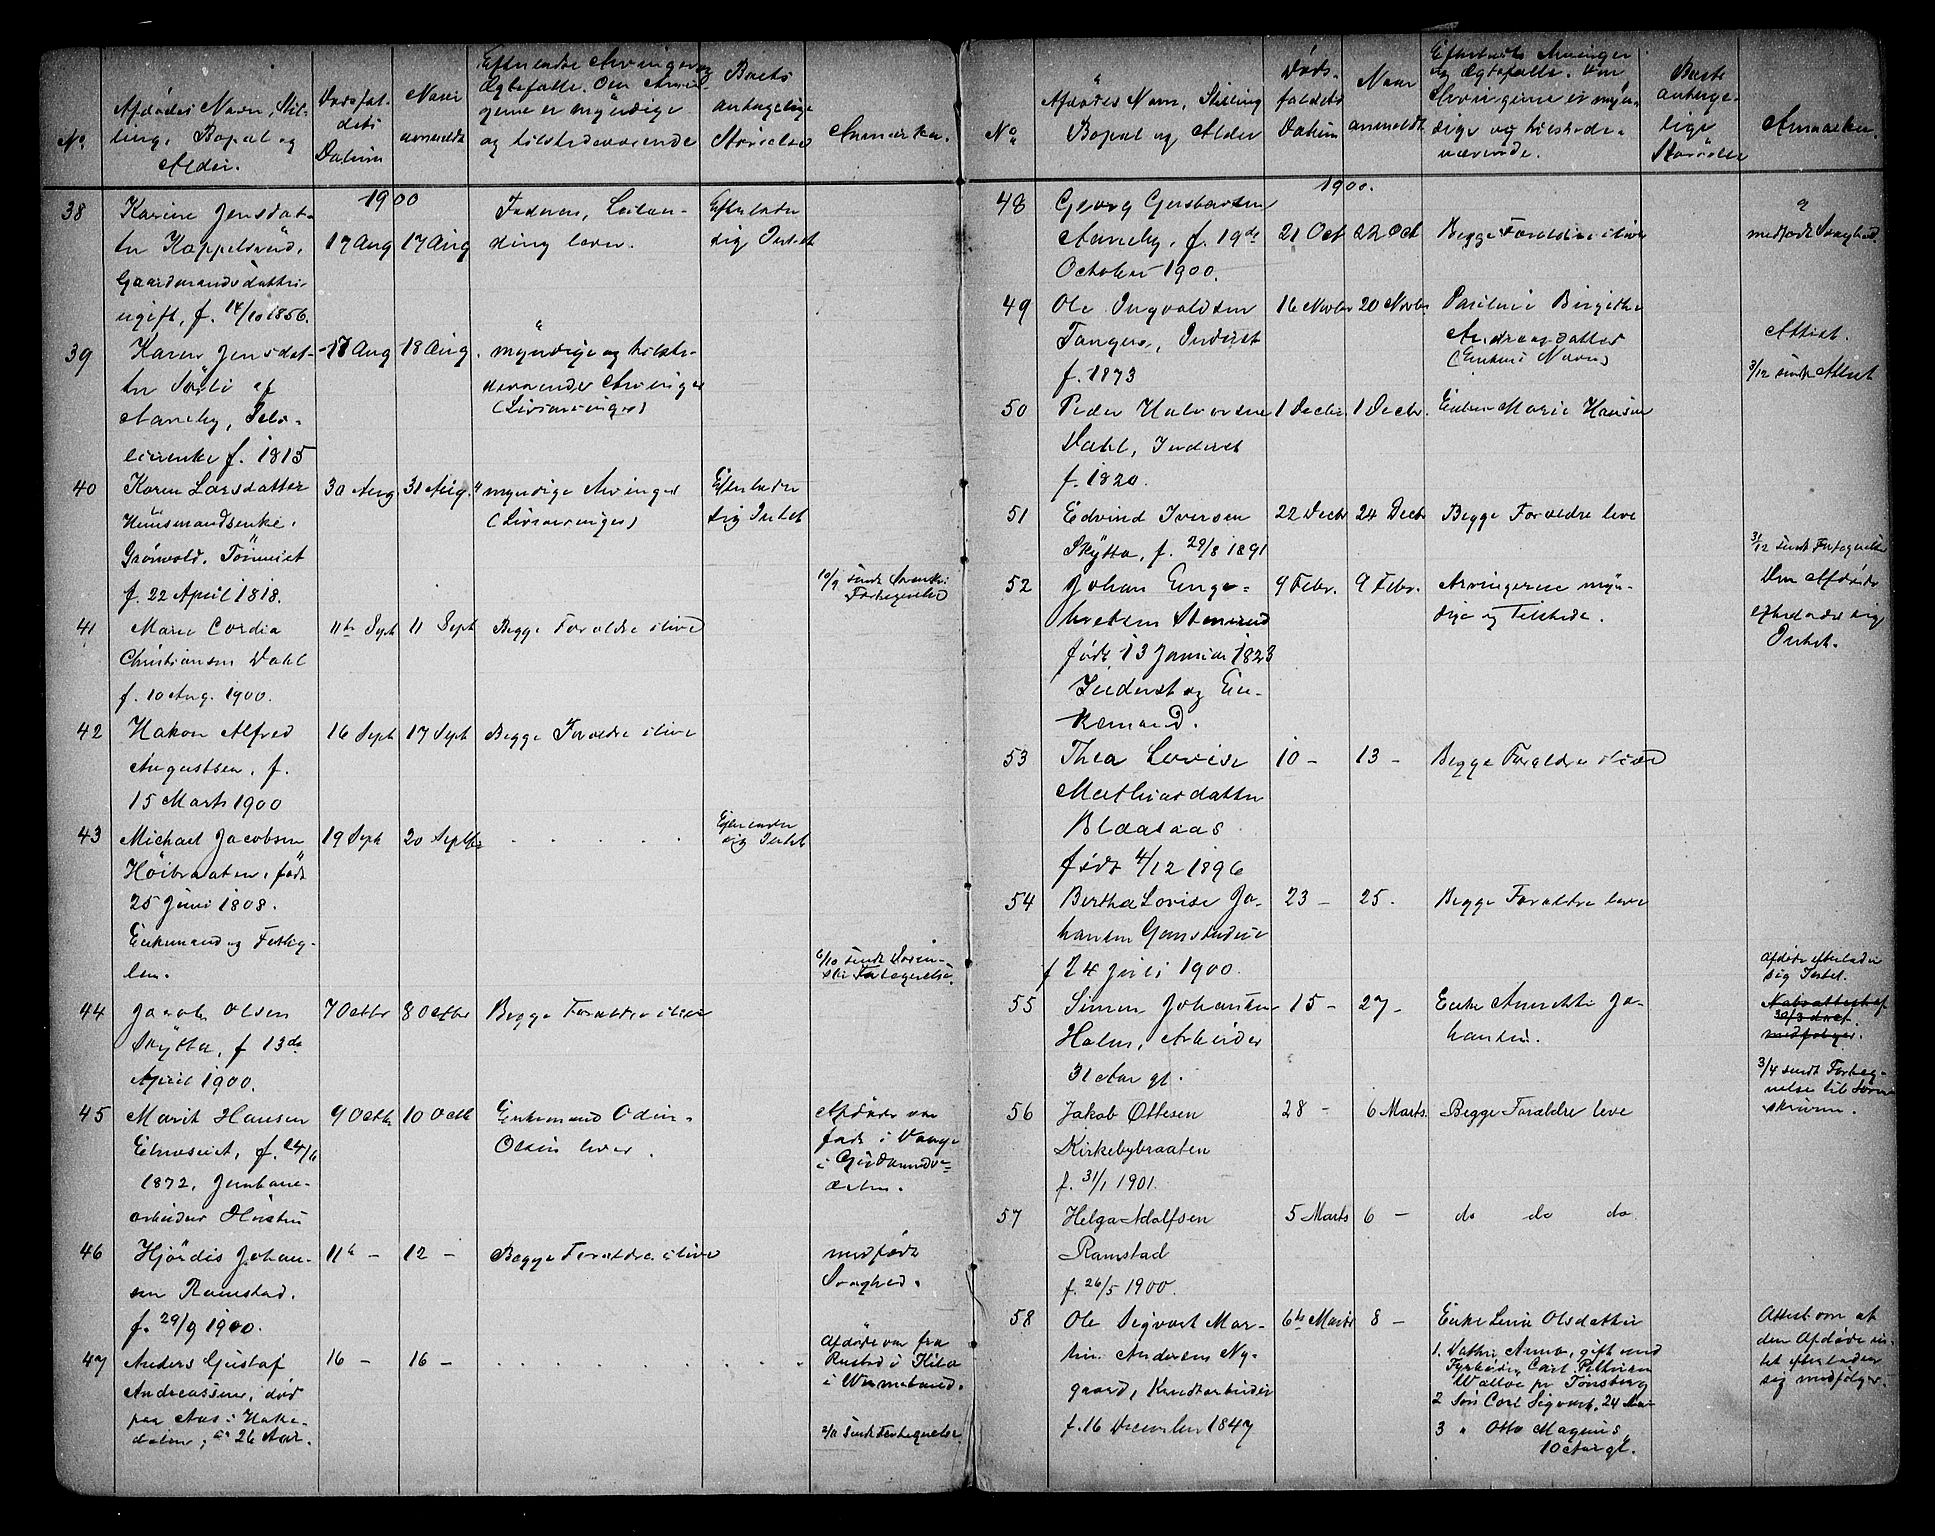 No.
Afdødes Navn, Stil-
ling, Bopæl og
Alder.
Dødsfal-
dets
Datum
Naar
anmeldt
Efterladte Arvinger og
Ægtefælle. Om Arvin-
gerne er myndige
og tilstedeværende
Boets
antagelige
Størrelse
Anmærkn.
1900
38
Karine Jensdat-
ter Kappelsrud,
Gaardmandsdatter
ugift, f. 14/10 1856.
17 Aug
17 Aug
Faderen,
lever.
Efterlader
sig Intet
39
Karen Jensdat-
ter Sørli af
Aaneby,
f. 1815
17 Aug
18 Aug.
myndige og tilste-
deværende Arvinger
(Livsarvinger)
40
Karen Larsdatter
Huusmandsenke,
Grønvold,
f. 22 April 1818.
30 Aug
31 Aug.
myndige Arvinger
(Livsarvinger)
Efterlader
sig Intet
10/9 sendt
Fortegnelse
41
Marie Cordia
Christiansen Dahl
f. 10 Aug. 1900.
11te Sept
11 Sept
Begge Forældre ilive
42
Hakon Alfred
Augustsen, f.
15 Marts 1900
16 Sept
17 Sept
Begge Forældre ilive
43
Michael Jacobsen
Høibraaten, født
25 Juni 1808.
Enkemand og Fattig-
lem.
19 Sept
20 Septbr
. . . . .
Efterlader
sig Intet
6/10 sendt Soren-
skr. Fortegnelse.
44
Jacob Olsen
Skytta, f 13de
April 1900.
7 Octbr
8 Octbr
Begge Forældre ilive
45
Marit Hansen
f. 24/6
1872, Jernbane-
arbeider Hustru
9 Octb
10 Octb
Enkemand Odin
Olsen lever.
Afdøde var
født i Vange
i Gudbrands-
dalen.
46
Hjørdis Johan-
sen Ramstad.
f. 29/9 1900.
11te –
12 –
Begge Forældre ilive
medfødt
Svaghed.
47
Anders Gustaf
Andreassen, død
paa Aas i Hake-
dalen, 26 Aar.
16 –
16 –
. . . . . . . .
Afdøde var fra
Rustad i Kila
i Wermeland.
2/11 sendt Fortegnelse.
No.
Afdødes Navn, Stilling
Bopæl og Alder
Døds-
faldets
Datum
Naar
anmeldt
Efterladte Arvinger
og Ægtefælle. Om
Arvingerne er myn-
dige og tilstede-
værende.
Boets
antage-
lige
Størrelse
Anmærkn.
1900.
48
Georg Gerhardsen
Aaneby, f. 19de
October 1900.
21 Oct
22 Oct
Begge Forældre ilive
medfødt Svaghed.
49
Ole Ingvaldsen
Tangen, Inderst
f. 1873
16 Novbr
20 Novbr
Pauline Birgithe
Andreasdatter
(Enkens Navn)
Attest.
3/12 sendt Attest
50
Peder Halvorsen
Dahl, Inderst
f. 1820.
1 Decbr.
1 Decbr.
Enken Marie Hansen
51
Edvind Iversen
Skytta, f. 29/8 1891
22 Decbr
24 Decbr
Begge Forældre leve
31/12 sendt Fortegnelse
52
Johan Enge-
bretsen Stenrud
født 13 Januar 1823
Inderst og En-
kemand.
9 Febr.
9 Febr.
Arvingerne myn-
dige og Tilstede.
Den Afdøde
efterlader sig
Intet.
53
Thea Lovise
Mathiasdatter
Blaasaas
født 4/12 1896
10 –
13 –
Begge Forældre ilive
54
Bertha Lovise Jo-
hansen
f 24 Juli 1900.
23 –
25.
Begge Forældre leve
55
Simen Johansen
Holm, Arbeider
31 Aar gl.
15 –
27 –
Enke Annette Jo-
hansen.
Afdøde efterlader
sig Intet.
30/3
medfølger.
3/4 sendt Forteg-
nelse til Soren-
skriveren.
56
Jakob Ottesen
Kirkebybraaten
f. 31/1 1901.
28 –
6 Marts
Begge Forældre leve
57
Helga Adolfsen
Ramstad
f. 26/5 1900.
5 Marts
6 –
do do do
58
Ole Sigvart Mar-
tin Andersen Ny-
gaard, Kreaturbeider
f. 16 December 1847
6te Marts
8 –
Enke Lina Olsdatter
1. Datter Anna, gift med
Fyrbøder Carl Pettersen
Walløe pr Tønsberg
2 Søn Carl Sigvart, 24 Aar
3 " Otto Magnus,
10 Aar gl.
Attest om at
den Afdøde in-
tet efterlader
sig medfølger.